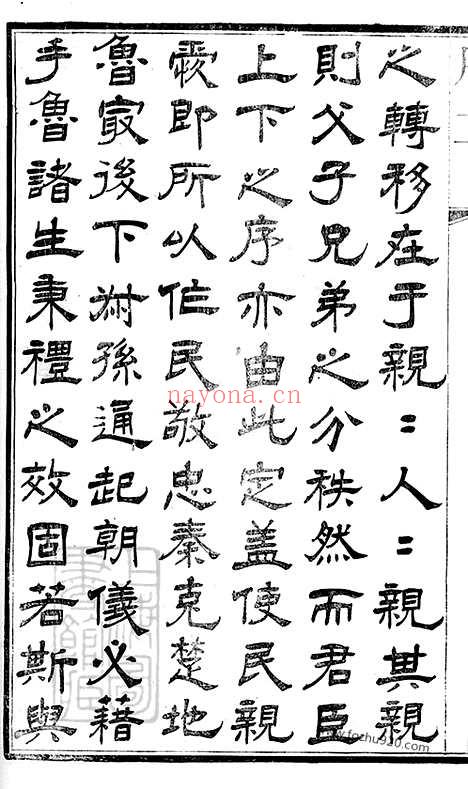 之轉移在于親〻人〻親其親
則父子兄弟之分秩然而君臣
上下之序亦由此定蓋使民親
愛即所以作民敬忠秦克楚地
魯冣後下叔孫通起朝儀必藉
手魯諸生秉禮之效固若斯與
nayona.cn
www.fozhu920.com